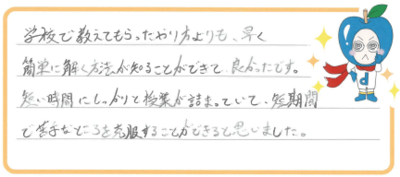 学校で教えてもらったやり方よりも、早く
簡単に解く方法が知ることができて、良かったです。
短い時間にしっかりと授業が詰まっていて、短期間
で苦手なところを克服することができると思いました。
d